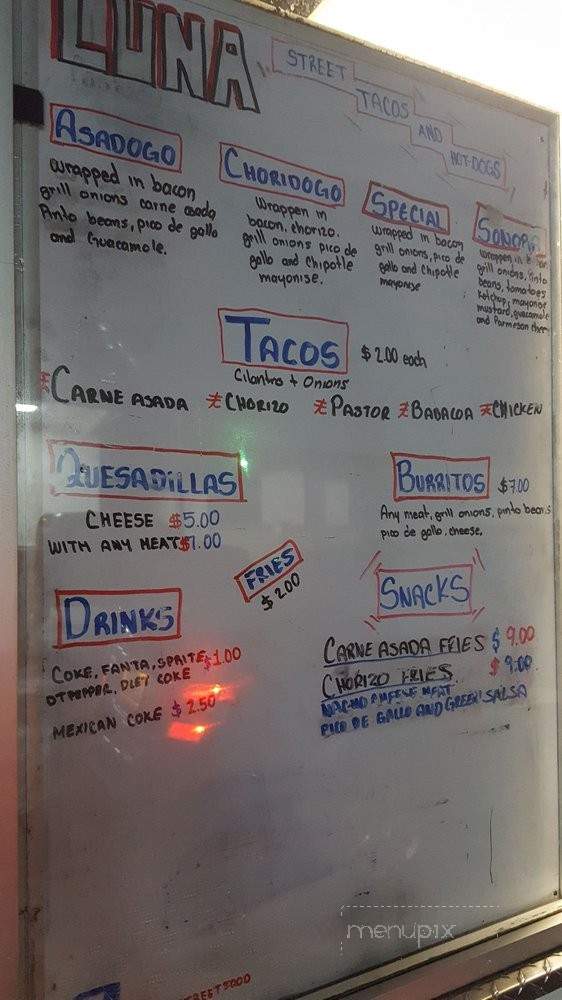 LUNA
STREET
TACOS
AND
HOT-DOGS
ASADOGO
wrapped in bacon
grill onions carne asada
Pinto beans, pico de gallo
and Guacamole.
CHORIDOGO
Wrappen in
bacon, chorizo.
grill onions pico de
gallo and Chipotle
mayonise.
SPECIAL
wrapped in bacon
grill onions, pico de
gallo and Chipotle
mayonise
SONORA
wrappen in
grill onions, Pinto
beans, tomatoes
ketchup, mayonise
mustard, guacamole
and Parmeson chees
TACOS
$2.00 each
Cilantro + Onions
CARNE ASADA CHORIZO PASTOR BABACOA CHICKEN
QUESADILLAS
CHEESE $5.00
WITH ANY MEAT $1.00
BURRITOS $7.00
Any meat, grill onions, pinto beans
pico de gallo, cheese.
FRIES
$2.00
DRINKS
COKE, FANTA, SPRITE, $1.00
DTPEPPER, DIET COKE
MEXICAN COKE $2.50
SNACKS
CARNE ASADA FRIES $9.00
CHORIZO FRIES $9.00
NACHO CHEESE MEAT
PICO DE GALLO AND GREEN SALSA
menupix